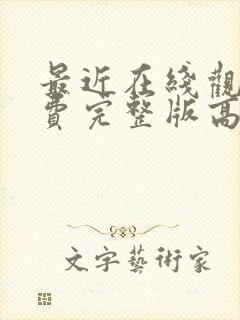 最近在线觀
费完整版高
文字藝術家